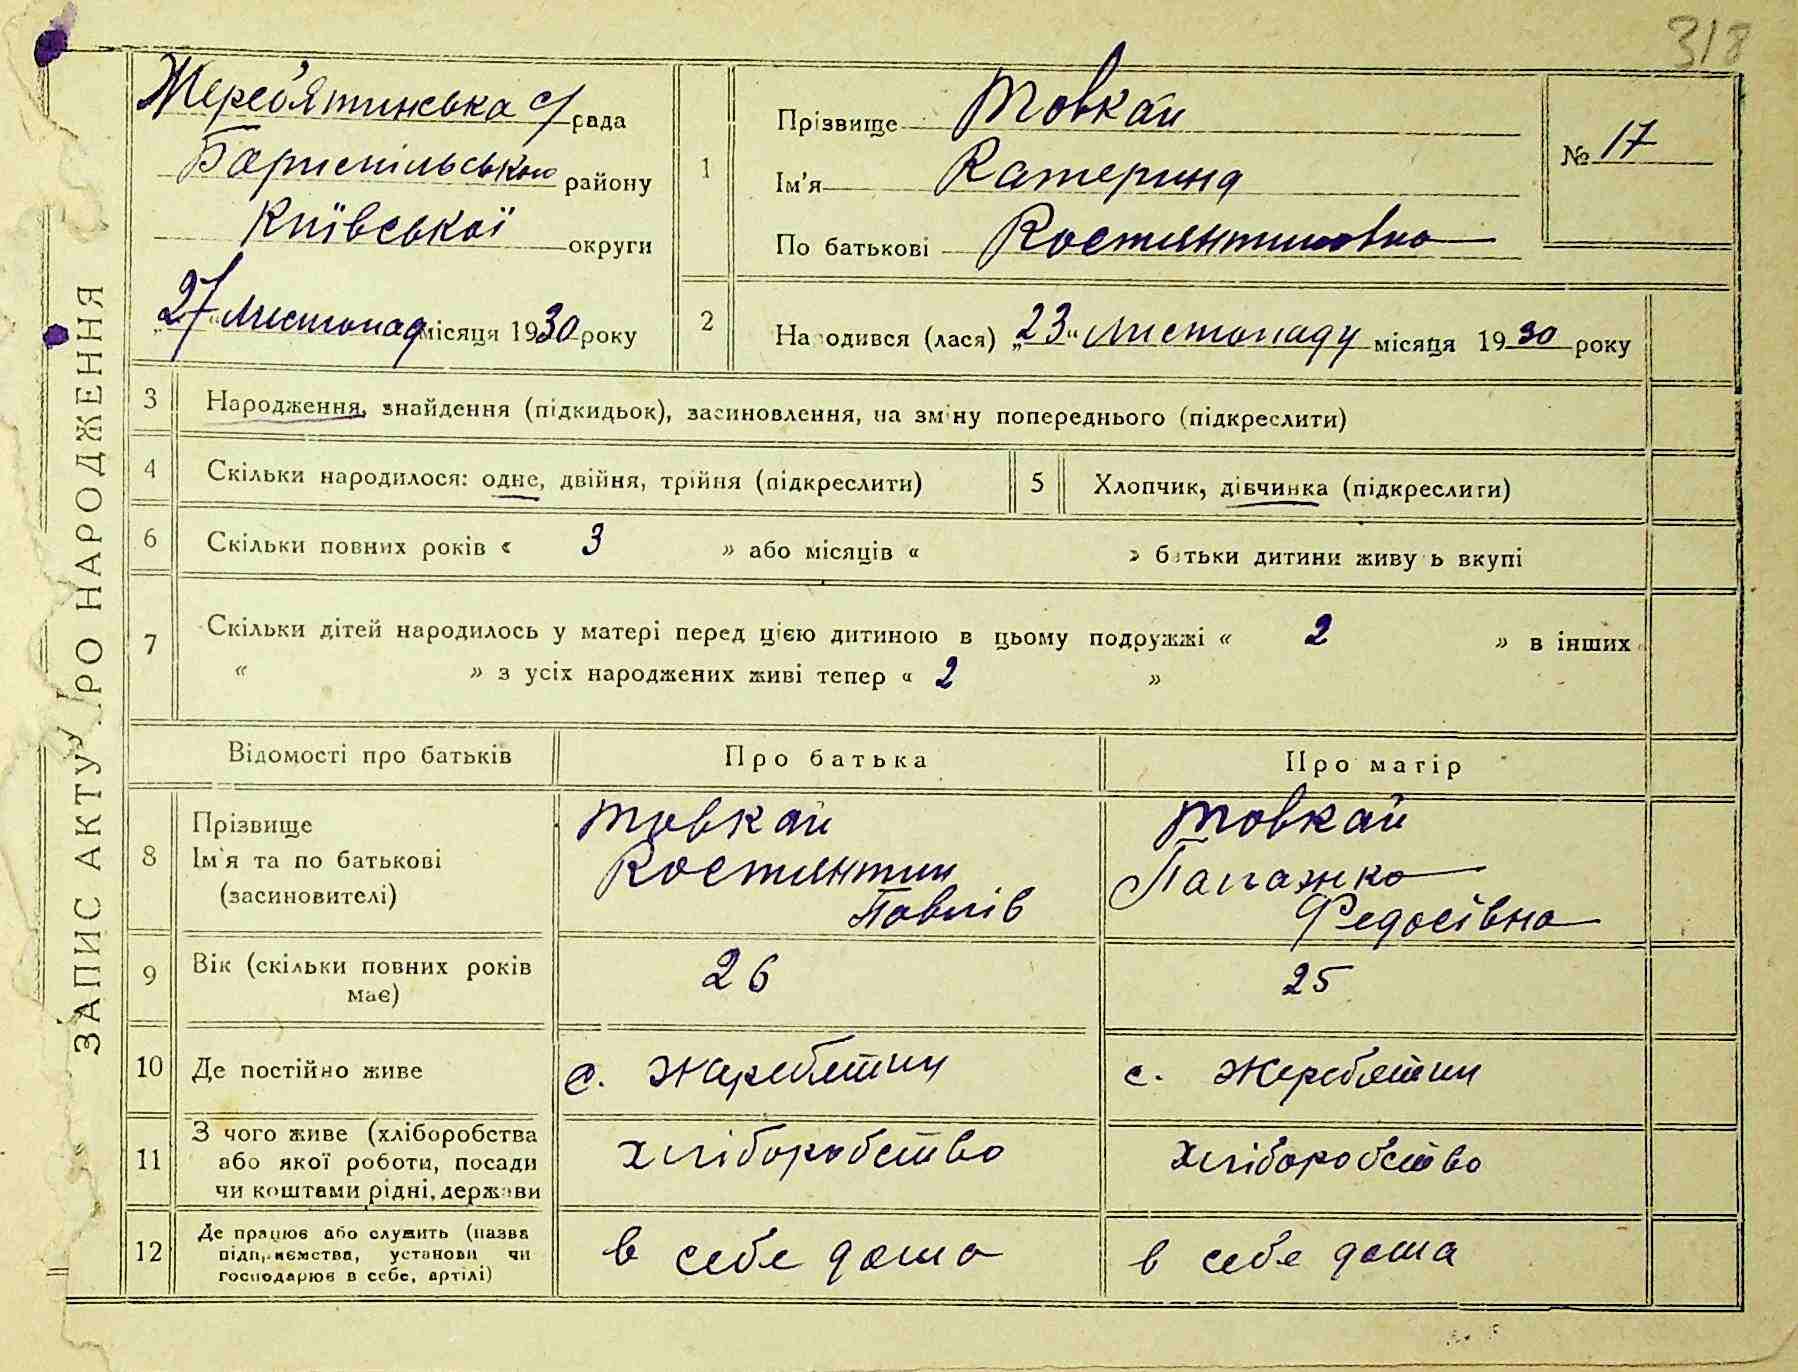 318
ЗАПИС АКТУ ПРО НАРОДЖЕННЯ
Жереб'ятинська с/рада
Бориспільського району
Київської округи
"27" Листопад місяця 1930 року
1
Прізвище Товкай
Ім'я Катерина
По батькові Костянтиновна
№ 17
2
Народився (лася) "23" Листопаду місяця 1930 року
3 Народження, знайдення (підкидьок), засиновлення, на зміну попереднього (підкреслити)
4 Скільки народилося: одне, двійня, трійня (підкреслити)
5 Хлопчик, дівчинка (підкреслити)
6 Скільки повних років « 3 » або місяців « » батьки дитини живуть вкупі
7 Скільки дітей народилось у матері перед цією дитиною в цьому подружжі « 2 » в інших
« » з усіх народжених живі тепер « 2 »
Відомості про батьків Про батька Про матір
8 Прізвище
Ім'я та по батькові
(засиновителі)
Товкай
Костянтин
Павлів
Товкай
Палажка
Федосівна
9 Вік (скільки повних років
має)
26
25
10 Де постійно живе
с. Жеребятин
с. Жеребятин
11 З чого живе (хліборобства
або якої роботи, посади
чи коштами рідні, держави
хліборобство
хліборобство
12 Де працює або служить (назва
підприємства, установи чи
господарює в себе, артілі)
в себе дома
в себе дома